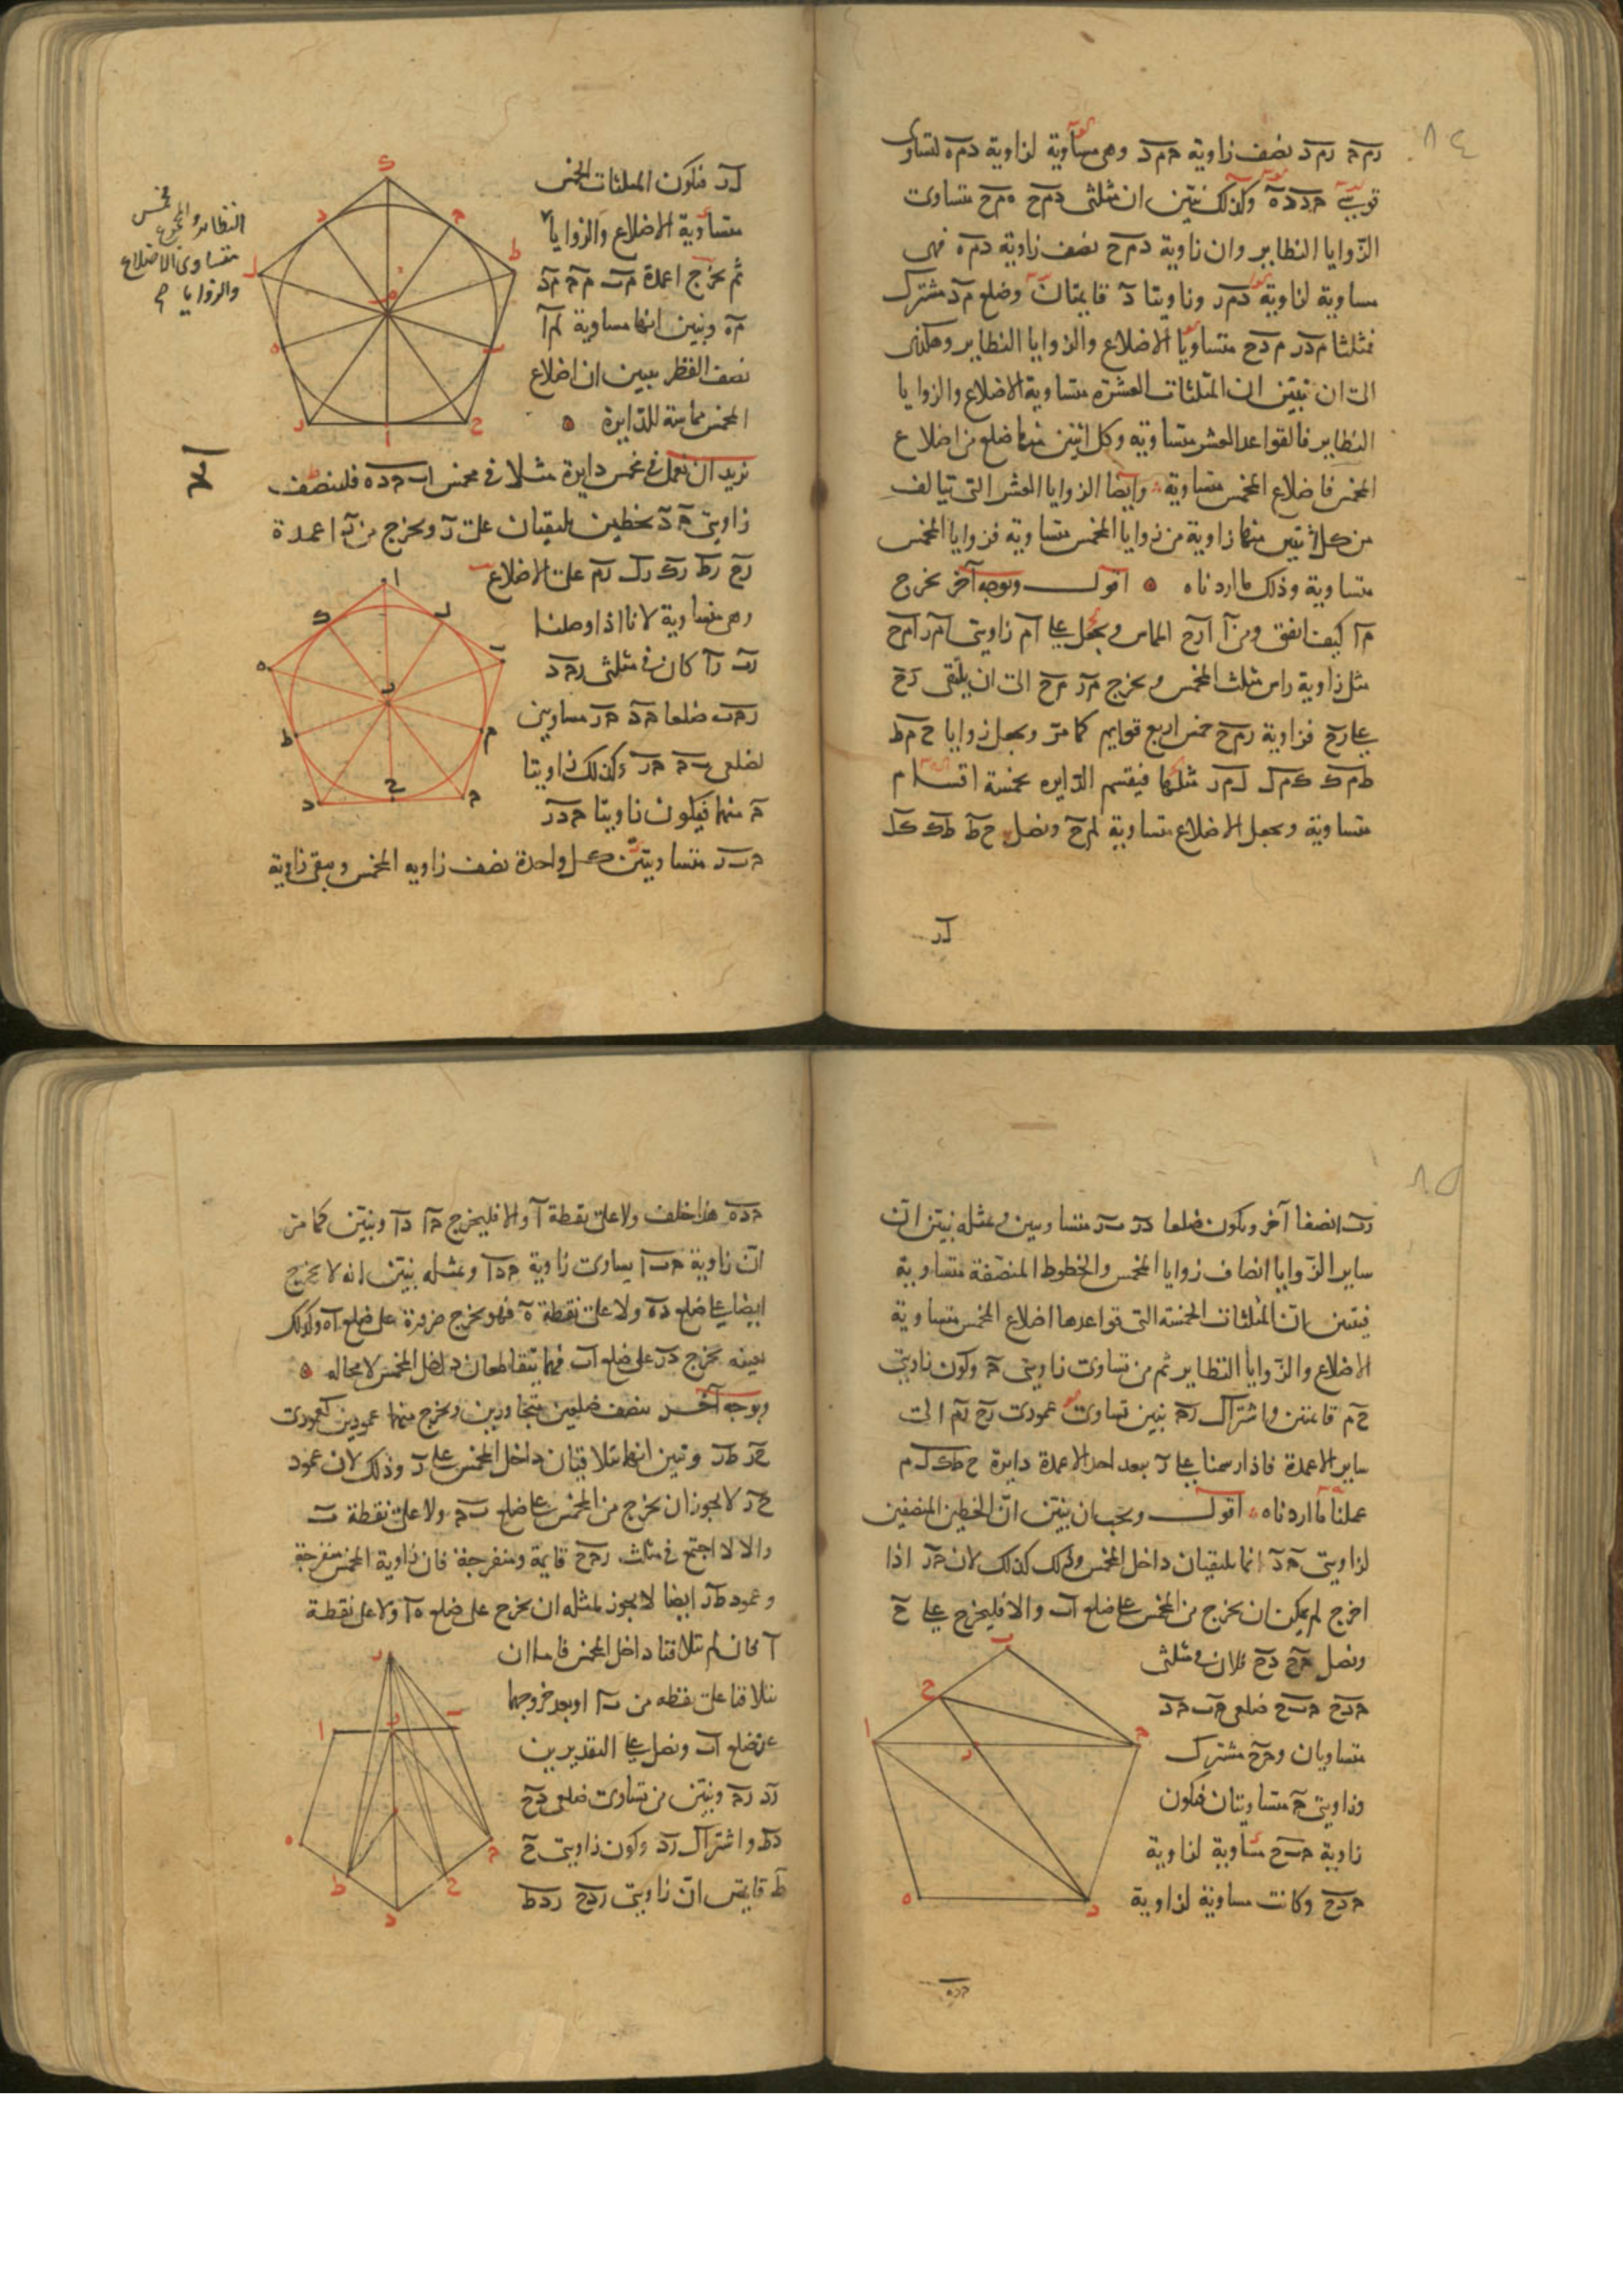 ٨٤
رم‍ح رم‍د نصف زاوية ح‍م‍د وهى مساوية لزاوية د‍م‍ه لتساوى
قوسى ح‍د د‍ه وكذلك نبين ان مثلثى د‍م‍ح ه‍م‍ح متساوى
الزوايا النظاير وان زاوية د‍م‍ح نصف زاوية د‍م‍ه فهى
مساوية لزاوية د‍م‍ر وزاويتا د قايمتان وضلع م‍د مشترك
فمثلثا م‍د‍ر م‍د‍ح متساويا الاضلاع والزوايا النظاير وهكذى
الى ان نبين ان المثلثات العشرة متساوية الاضلاع والزوايا
النظاير فالقواعد العشر متساويه وكل اثنين منها ضلع من اضلاع
المخمس فاضلاع المخمس متساوية وايضا الزوايا العشر التى تتالف
من كل اثنتين منها زاوية من زوايا المخمس متساوية فزوايا المخمس
متساوية وذلك ما اردناه ه اقول وبوجه آخر نخرج
م‍ا كيف اتفق ومن ا ا‍ر‍ح المماس ونجعل على ا‍م زاويتى ا‍م‍ر ا‍م‍ح
مثل زاوية راس مثلث المخمس ونخرج م‍ر م‍ح الى ان يلتقى ر‍ح
على ر‍ح فزاوية ر‍م‍ح خمس اربع قوايم كما مر ونجعل زوايا ح‍م‍ط
ط‍م‍ك ك‍م‍ل ل‍م‍ر مثلها فينقسم الدايره بخمسة اقسام
متساوية ونجعل الاضلاع متساوية ل‍م‍ح ونصل ح‍ط ط‍ك ك‍ل
ل‍ر
ل‍ر فتكون المثلثات الخمس
متساوية الاضلاع والزوايا
النظاير والمخمس
متساوى الاضلاع
والزوايا
ثم نخرج اعمدة م‍ب م‍ح م‍د
م‍ه ونبين انها مساوية ل‍م‍ا
نصف القطر فبين ان اضلاع
المخمس مماسة للدايرة ه
نريد ان نعمل فى مخمس دايرة مثلا فى مخمس ا‍ب‍ح‍د‍ه فلننصف
زاويتى ح د بخطين يلتقيان على ر ونخرج من ر اعمدة
ر‍ح ر‍ط ر‍ك ر‍ل ر‍م على الاضلاع
وهى متساوية لانا اذا وصلنا
ر‍ب ر‍ا كان فى مثلثى ر‍ح‍د
ر‍ح‍ب ضلعا ح‍د ح‍ر مساويين
لضلعى ب‍ح ح‍ر وكذلك زاويتا
ح منهما فيكون زاويتا ح‍د‍ر
ح‍ب‍ر متساويتين وكل واحدة نصف زاويه المخمس ويبقى زاوية
٨٥
ر‍ب‍ا نصفا آخر ويكون ضلعا د‍ر ب‍ر متساويين وبمثله نبين ان
ساير الزوايا انصاف زوايا المخمس والخطوط المنصفة متساوية
فيتبين ان المثلثات الخمسة التى قواعدها اضلاع المخمس متساوية
الاضلاع والزوايا النظاير ثم من تساوى زاويتى ح وكون زاويتى
ح م قائمتين واشتراك ر‍ح نبين تساوى عمودى ر‍ح ر‍م الى
ساير الاعمدة فاذا رسمنا على ر ببعد احد الاعمدة دايرة ح‍ط‍ك‍ل‍م
عملنا ما اردناه اقول ويجب ان نبين ان الخطين المنصفين
لزاويتى ح د انما يلتقيان داخل المخمس وذلك كذلك لان ح‍ر اذا
اخرج لم يمكن ان يخرج من المخمس على ضلع ا‍ب والا فليخرج على ح
ونصل ح‍ح د‍ح فلان فى مثلثى
ح‍د‍ح ح‍ب‍ح ضلعى ح‍ب ح‍د
متساويان وح‍ح مشترك
وزاويتى ح متساويتان فيكون
زاوية ح‍ب‍ح مساوية لزاوية
ح‍د‍ح وكانت مساوية لزاوية
ح‍د‍ه
ح‍د‍ه هذا خلف ولا على نقطة ا والا فليخرج ح‍ا د‍ا ونبين كما مر
ان زاوية ح‍ب‍ا يساوى زاوية ح‍د‍ا وبمثله نبين انه لا يخرج
ايضا على ضلع د‍ه ولا على نقطة ه فهو يخرج ضرورة على ضلع ا‍ه وكذلك
بعينه نخرج د‍ر على ضلع ا‍ب فهما يتقاطعان داخل المخمس لا محاله ه
وبوجه آخر ننصف ضلعين متجاورين ونخرج منهما عمودين كعمودى
ح‍ر ط‍ر ونبين انهما يتلاقيان داخل المخمس على ر وذلك لان عمود
ح‍ر لا يجوز ان يخرج من المخمس على ضلع ب‍ح ولا على نقطة ب
والا لاجتمع فى مثلث ر‍ح‍ح قايمة ومنفرجة فان زاوية المخمس منفرجة
وعمود ط‍ر ايضا لا يجوز لمثله ان يخرج على ضلع ه‍ا ولا على نقطة
ا فان لم تتلاقيا داخل المخمس فاما ان
يتلاقيا على نقطه من ب‍ا او بعد خروجهما
عن ضلع ا‍ب ونصل على التقديرين
ر‍د ر‍ح ونبين من تساوى ضلعى د‍ح
د‍ط واشتراك ر‍د وكون زاويتى ح
ط قايمتين ان زاويتى ر‍د‍ح ر‍د‍ط